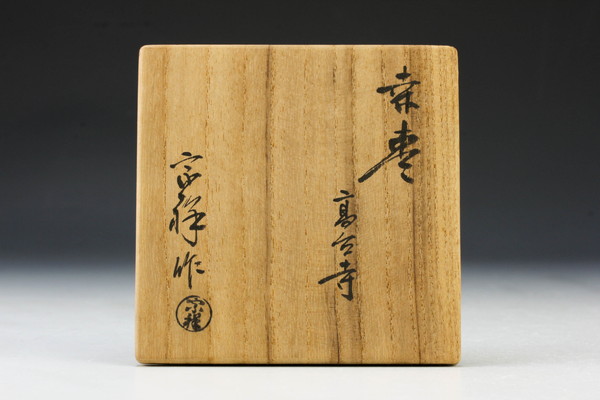 棗
高台寺
宗祥作